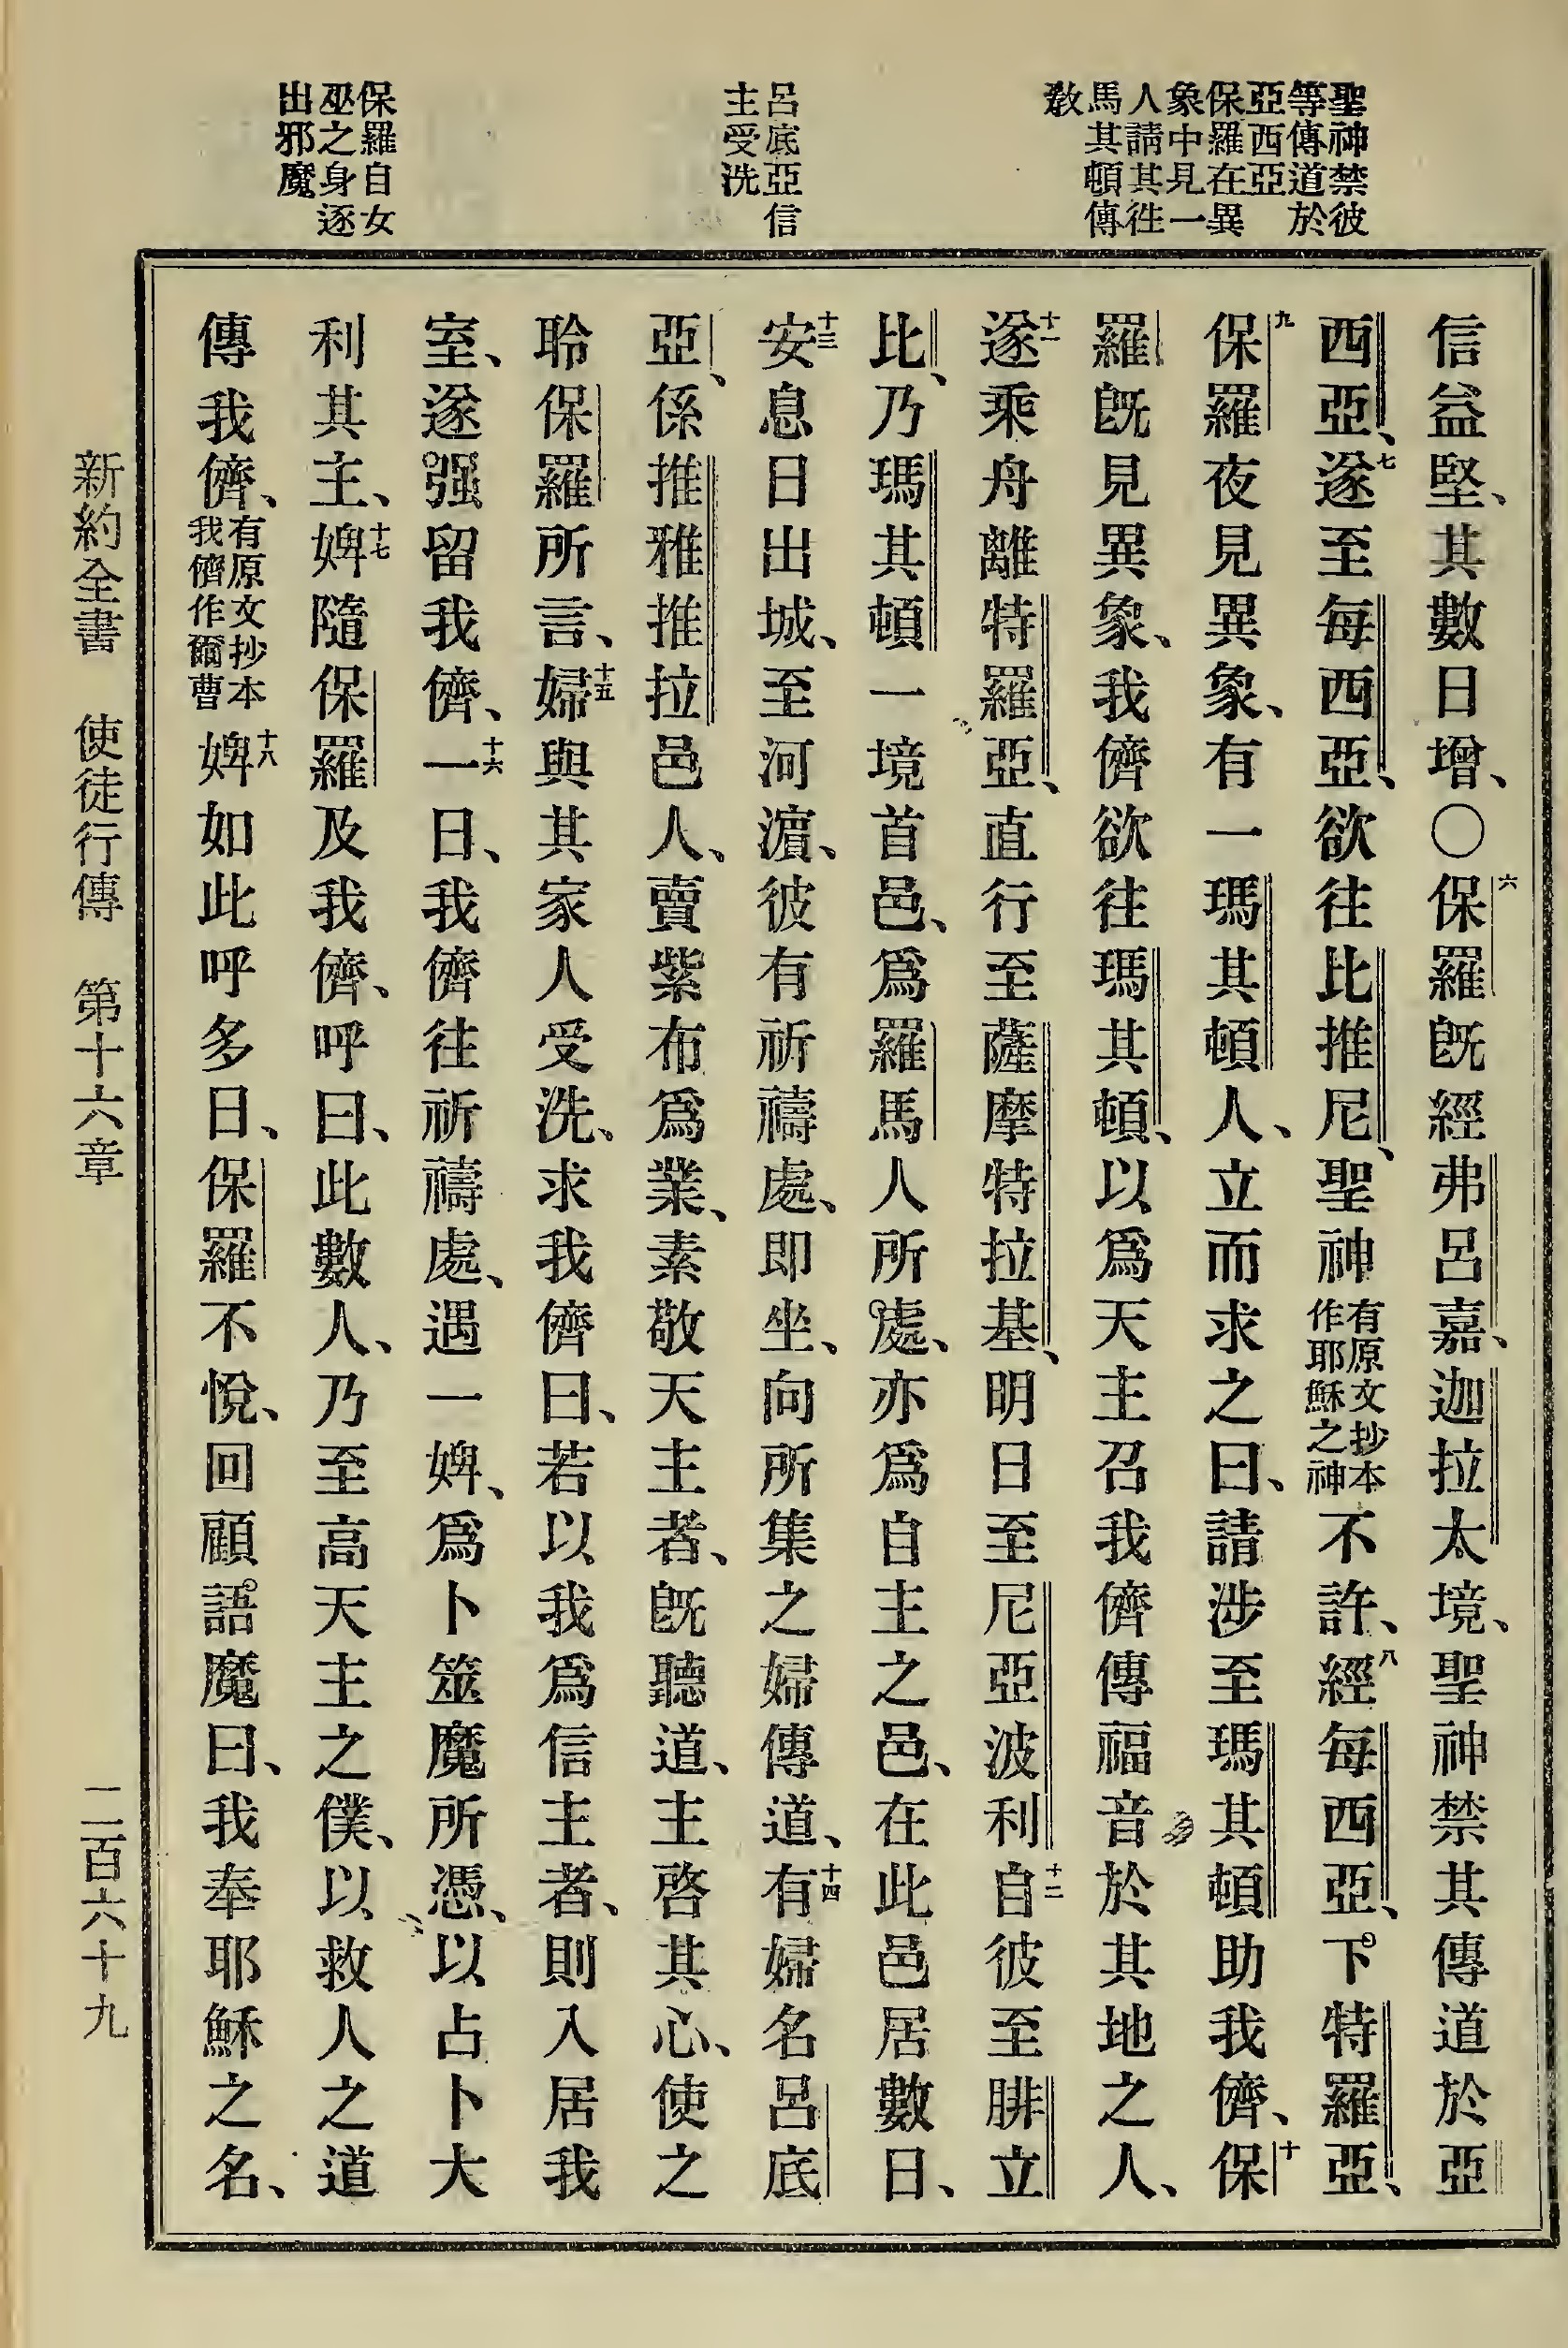 聖神禁彼
等傳道於
亞西亞
保羅在異
象中見一
人請其徃
馬其頓傳
敎
呂底亞信
主受洗
保羅自女
巫之身逐
出邪魔
信益堅、其數日增、〇六保羅旣經弗呂嘉、迦拉太境、聖神禁其傳道於亞
西亞、七遂至每西亞、欲往比推尼、聖神有原文抄本作耶穌之神不許、八經每西亞、下特羅亞、
九保羅夜見異象、有一瑪其頓人、立而求之曰、請涉至瑪其頓助我儕、十保
羅旣見異象、我儕欲往瑪其頓、以爲天主召我儕傳福音於其地之人、
十一遂乘舟離特羅亞、直行至薩摩特拉基、明日至尼亞波利十二自彼至腓立
比、乃瑪其頓一境首邑、爲羅馬人所處、亦爲自主之邑、在此邑居數日、
十三安息日出城、至河濵、彼有祈禱處、卽坐、向所集之婦傳道、十四有婦名呂底
亞、係推雅推拉邑人、賣紫布爲業、素敬天主者、旣聽道、主啓其心、使之
聆保羅所言、十五婦與其家人受洗、求我儕曰、若以我爲信主者、則入居我
室、遂强留我儕、十六一日、我儕往祈禱處、遇一婢、爲卜筮魔所憑、以占卜大
利其主、十七婢隨保羅及我儕、呼曰、此數人、乃至高天主之僕、以救人之道
傳我儕、有原文抄本我儕作爾曹十八婢如此呼多日、保羅不悅、回顧語魔曰、我奉耶穌之名、
新約全書 使徒行傳 第十六章 二百六十九